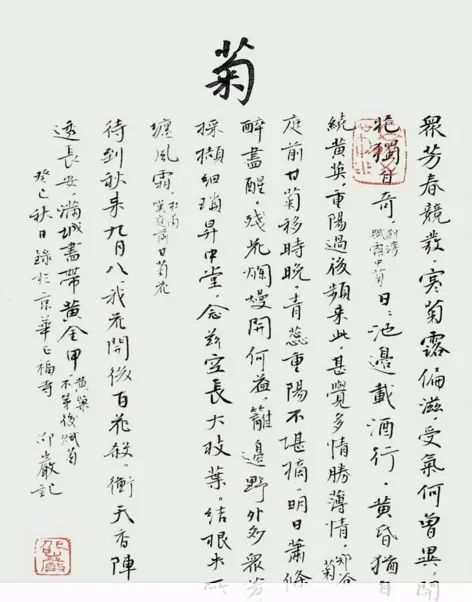 菊
眾芳春競發。寒菊露偏滋。受氣何曾異。開
花獨自奇。劉灣賦露中菊日日池邊載酒行。黃昏猶自
繞黃英。重陽過後頻来此。甚覺多情勝薄情。鄭谷菊
庭前甘菊移時晚。青蕊重陽不堪摘。明日蕭條
醉盡醒。殘花爛熳開何益。籬邊野外多眾芳
採擷細瑣昇中堂。念茲空長大枝葉。結根失所
纏風霜。杜甫嘆庭前甘菊花
待到秋来九月八我花開後百花殺。衝天香陣
透長安。滿城盡帶黃金甲黃巢不第後賦菊
癸巳秋日錄於京華福寺 巖記